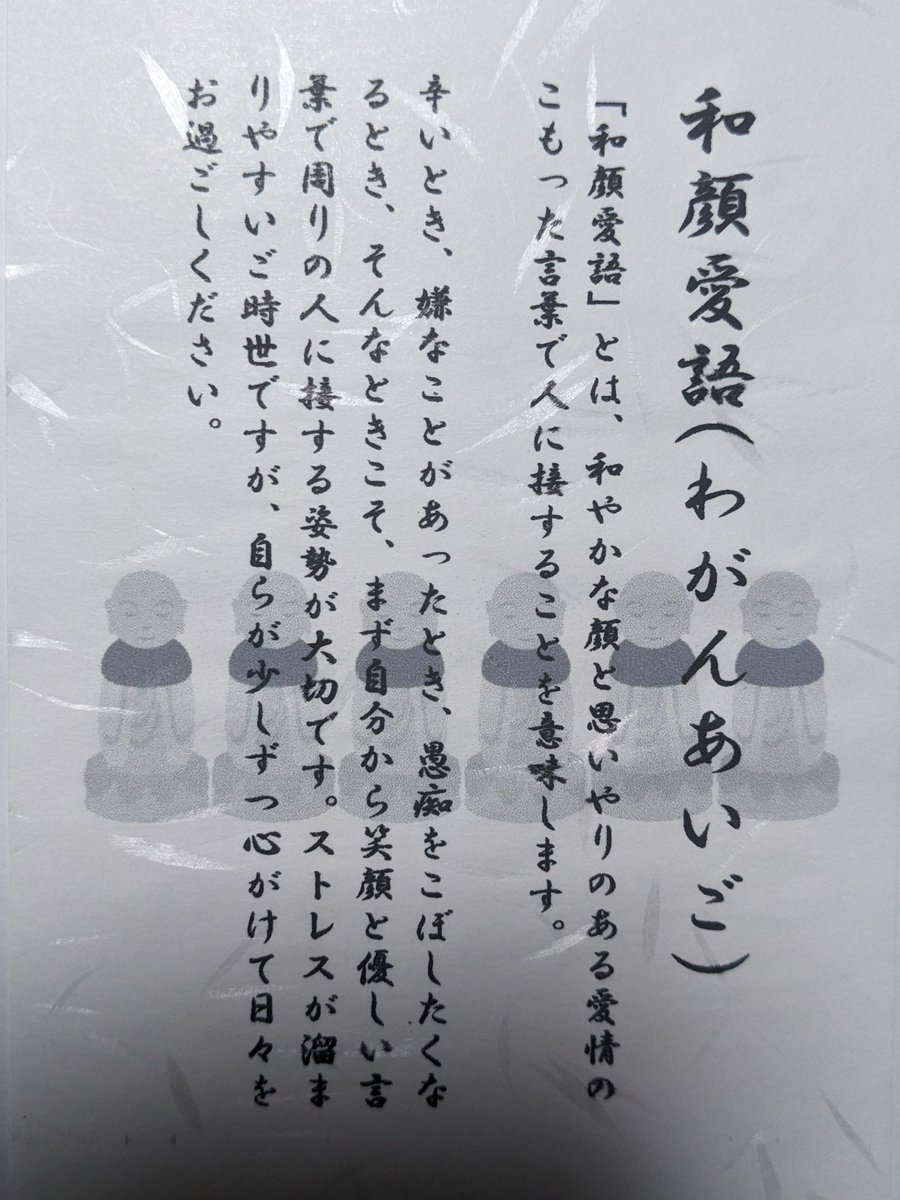 和顔愛語(わがんあいご)
「和顔愛語」とは、和やかな顔と思いやりのある愛情の
こもった言葉で人に接することを意味します。
辛いとき、嫌なことがあったとき、愚痴をこぼしたくな
るとき、そんなときこそ、まず自分から笑顔と優しい言
葉で周りの人に接する姿勢が大切です。ストレスが溜ま
りやすいご時世ですが、自らが少しずつ心がけて日々を
お過ごしください。